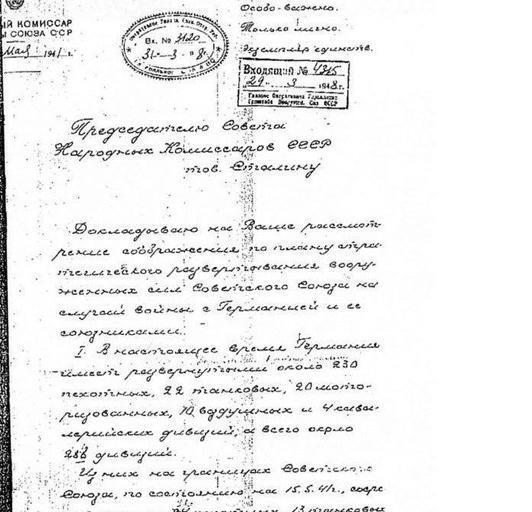 ЫЙ КОМИССАР
Ы СОЮЗА ССР
Мая 1941 г.
Особо важно.
Только лично.
Экземпляр единств.
Вх. № 3120
31 - 3 - 1948 г.
Входящий № 4345
29 3 1948 г.
Главное Оперативное Управление
Председателю Совета
Народных Комиссаров СССР
тов. Сталину
Докладываю на Ваше рассмот-
рение соображения по плану стра-
тегического развертывания воору-
женных сил Советского Союза на
случай войны с Германией и ее
союзниками.
I. В настоящее время Германия
имеет развернутыми около 230
пехотных, 22 танковых, 20 мото-
ризованных, 10 воздушных и 4 кава-
лерийских дивизий, а всего около
286 дивизий.
Из них на границах Советского
Союза, по состоянию на 15.5.41г., соср
пехотных, 13 танковых